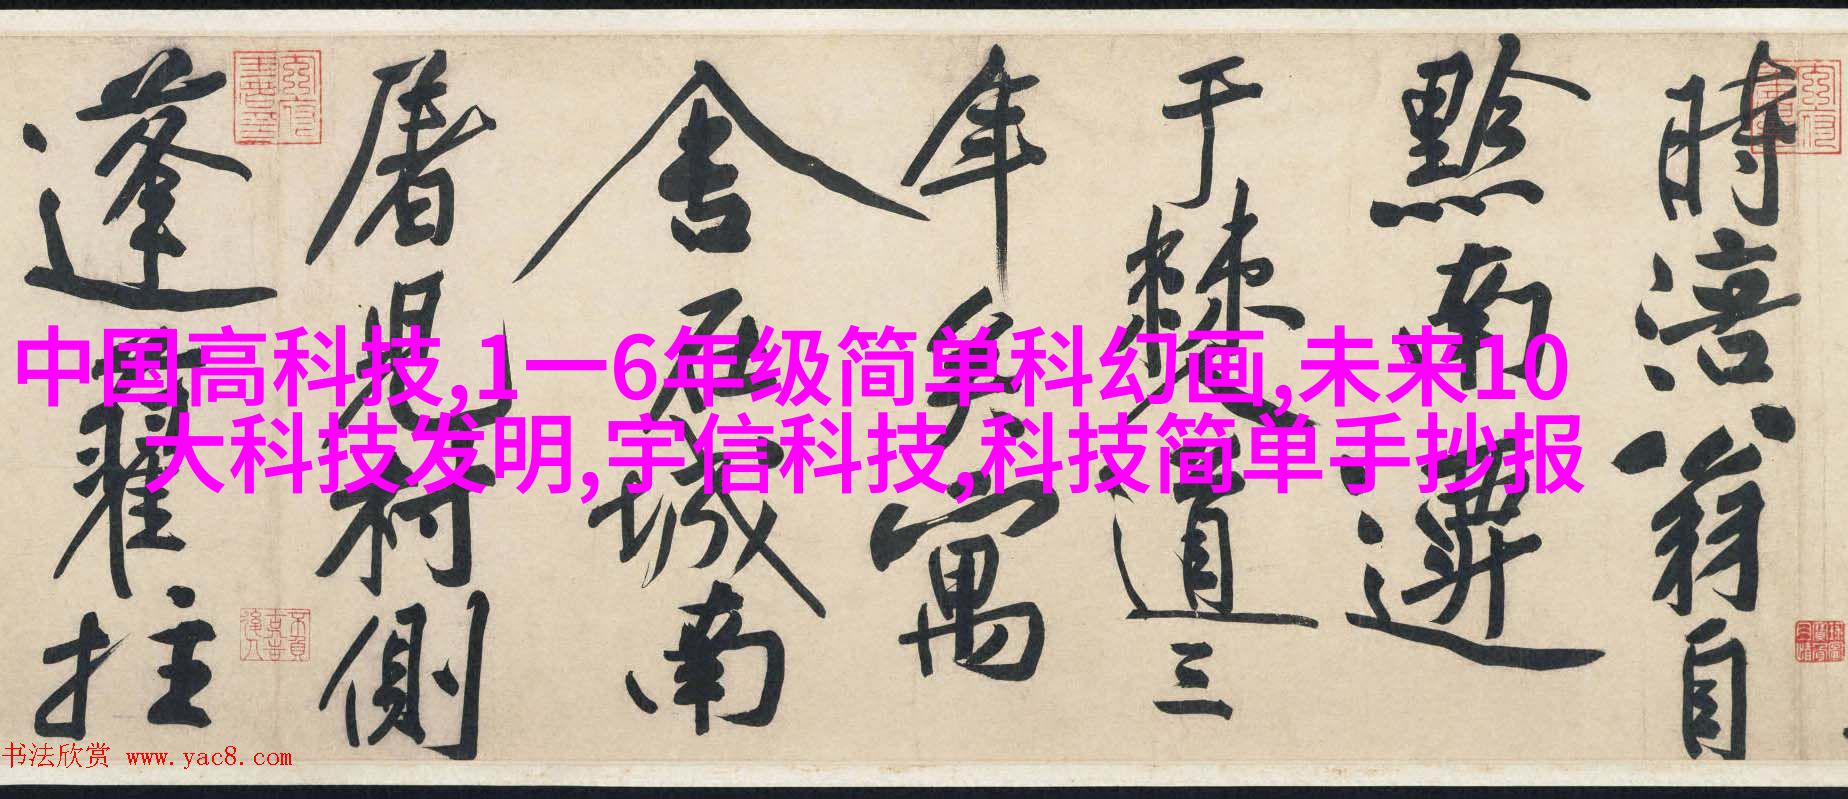 中国高科技,1一6年级简单科幻画,未来10
大科技发明,宇信科技,科技简单手抄报
時涪翁自
黔南遷
于棘道三
年矣寓
舍在城南
屠兒村側
蓬藋拄
书法欣赏 www.yac8.com